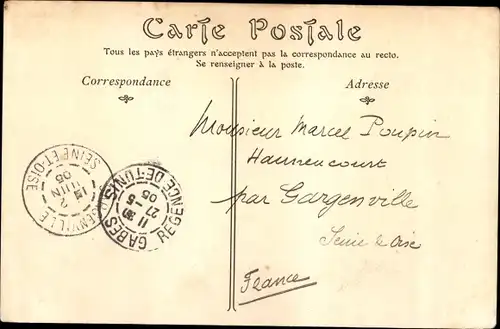 Carte Postale
Tous les pays étrangers n'acceptent pas la correspondance au recto.
Se renseigner à la poste.
Correspondance
Adresse
Monsieur Marcel Poupin
Hannencourt
par Gargenville
Seine & Oise
France
GARGENVILLE
SEINE-ET-OISE
2
JUIN
05
GABES
REGENCE DE TUNIS
27 -5
05